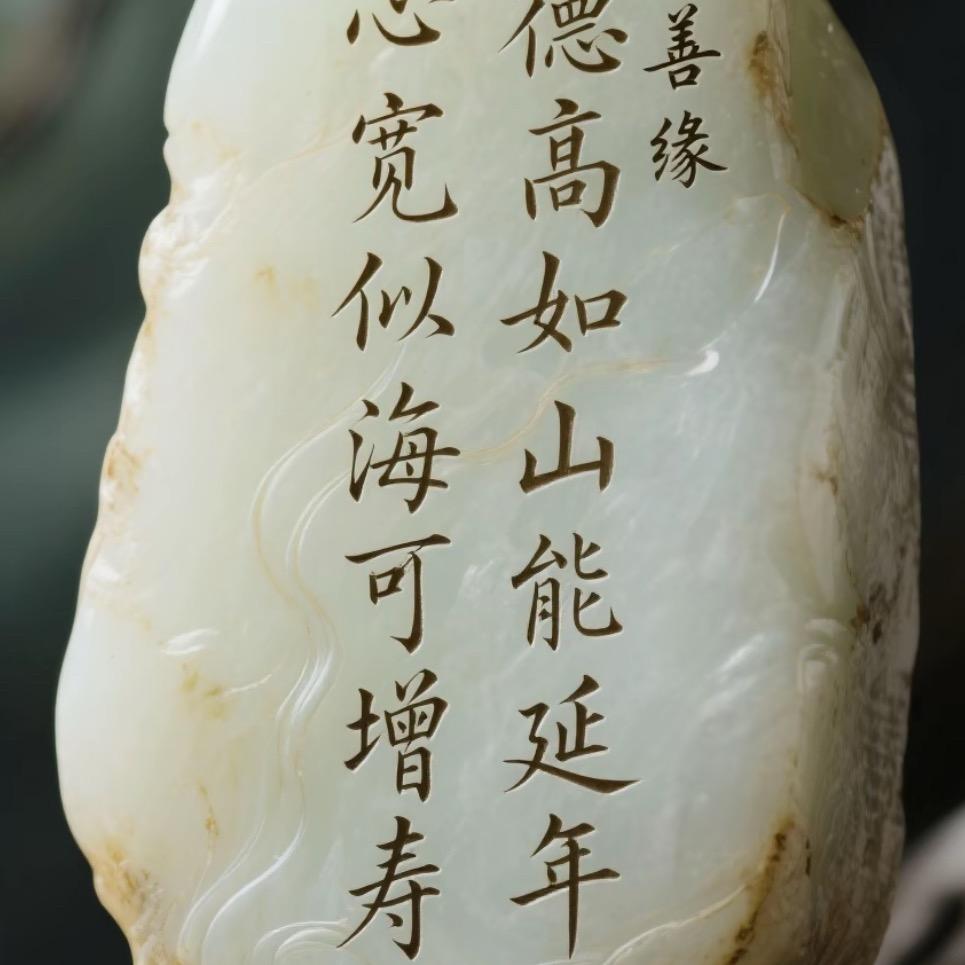 善缘
德高如山能延年
心宽似海可增寿